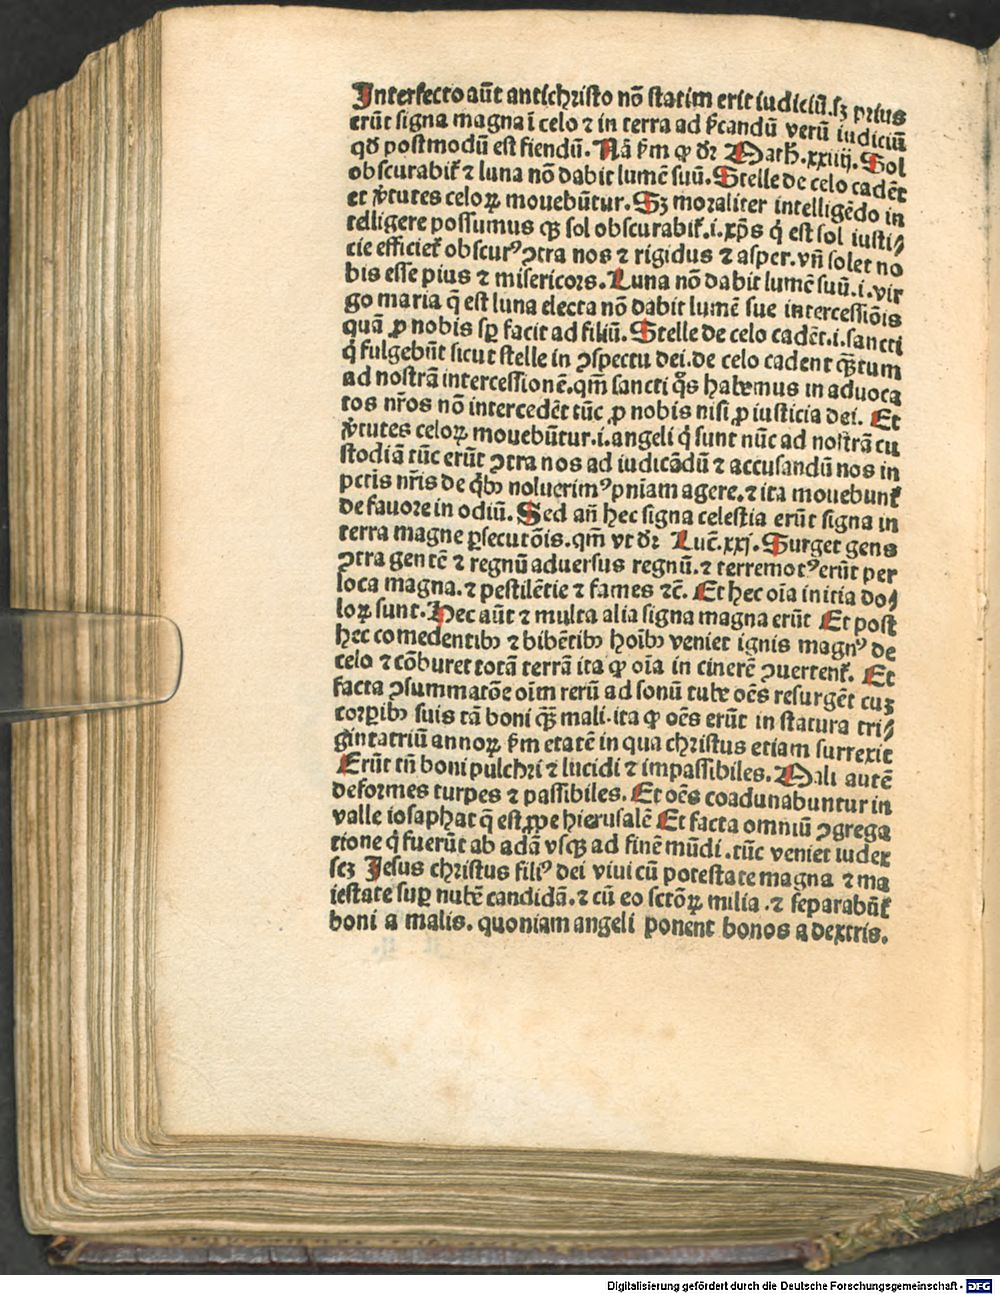 Interfecto aūt antichristo nō statim erit iudiciū. sꝫ prius
erūt signa magna ī celo ⁊ in terra ad ꝓ̄candū verū iudiciū
qd̄ postmodū est fiendū. Nā ẜm ꝙ dr̄ Math̄. xxiiij. Sol
obscurabit᷑ ⁊ luna nō dabit lumē suū. Stelle de celo cadēt
et v̓tutes celoꝝ mouebūtur. Sꝫ moraliter intelligēdo in
telligere possumus ꝙ sol obscurabit᷑. i. xp̄s q̇ est sol iusti⸗
cie efficiet᷑ obscurꝰ ↄtra nos ⁊ rigidus ⁊ asper. vn̄ solet no
bis esse pius ⁊ misericors. Luna nō dabit lumē suū. i. vir
go maria q̄ est luna electa nō dabit lumē sue intercessiōis
quā ꝓ nobis sꝑ facit ad filiū. Stelle de celo cadēt. i. sancti
q̇ fulgebūt sicut stelle in ↄspectu dei. de celo cadent qꝫtum
ad nostrā intercessionē. qm̄ sancti q̊s habemus in aduoca
tos nr̄os nō intercedēt tūc ꝓ nobis nisi ꝓ iusticia dei. Et
v̓tutes celoꝝ mouebūtur. i. angeli q̇ sunt nūc ad nostrā cu
stodiā tūc erūt ↄtra nos ad iudicādū ⁊ accusandū nos in
pctīs nr̄is de q̇bꝫ noluerimꝰ pniam agere. ⁊ ita mouebunt᷑
de fauore in odiū. Sed añ hec signa celestia erūt signa in
terra magne ꝑsecutōis. qm̄ vt dr̄ Luc̄. xxj. Surget gens
ↄtra gentē ⁊ regnū aduersus regnū. ⁊ terremotꝰ erūt per
loca magna. ⁊ pestilētie ⁊ fames ⁊c̄. Et hec oīa initia do⸗
loꝝ sunt. Hec aūt ⁊ multa alia signa magna erūt Et post
hec comedentibꝫ ⁊ bibētibꝫ hoībꝫ veniet ignis magnꝰ de
celo ⁊ cōburet totā terrā ita ꝙ oīa in cinerē ↄuertent᷑. Et
facta ↄsummatōe oīm rerū ad sonū tube oēs resurgēt cuꝫ
corꝑibꝫ suis tā boni qꝫ mali. ita ꝙ oēs erūt in statura tri⸗
gintatriū annoꝝ ẜm etatē in qua christus etiam surrexit
Erūt tn̄ boni pulchri ⁊ lucidi ⁊ impassibiles. Mali autē
deformes turpes ⁊ passibiles. Et oēs coadunabuntur in
valle iosaphat q̄ est ꝓpe hierusalē Et facta omniū ↄgrega
tione q̇ fuerūt ab adā vsqꝫ ad finē mūdi. tūc veniet iudex
scꝫ Jesus christus filiꝰ dei viui cū potestate magna ⁊ ma
iestate suꝑ nubē candidā. ⁊ cū eo sctōꝝ milia. ⁊ separabūt᷑
boni a malis. quoniam angeli ponent bonos a dextris.
Digitalisierung gefördert durch die Deutsche Forschungsgemeinschaft - DFG